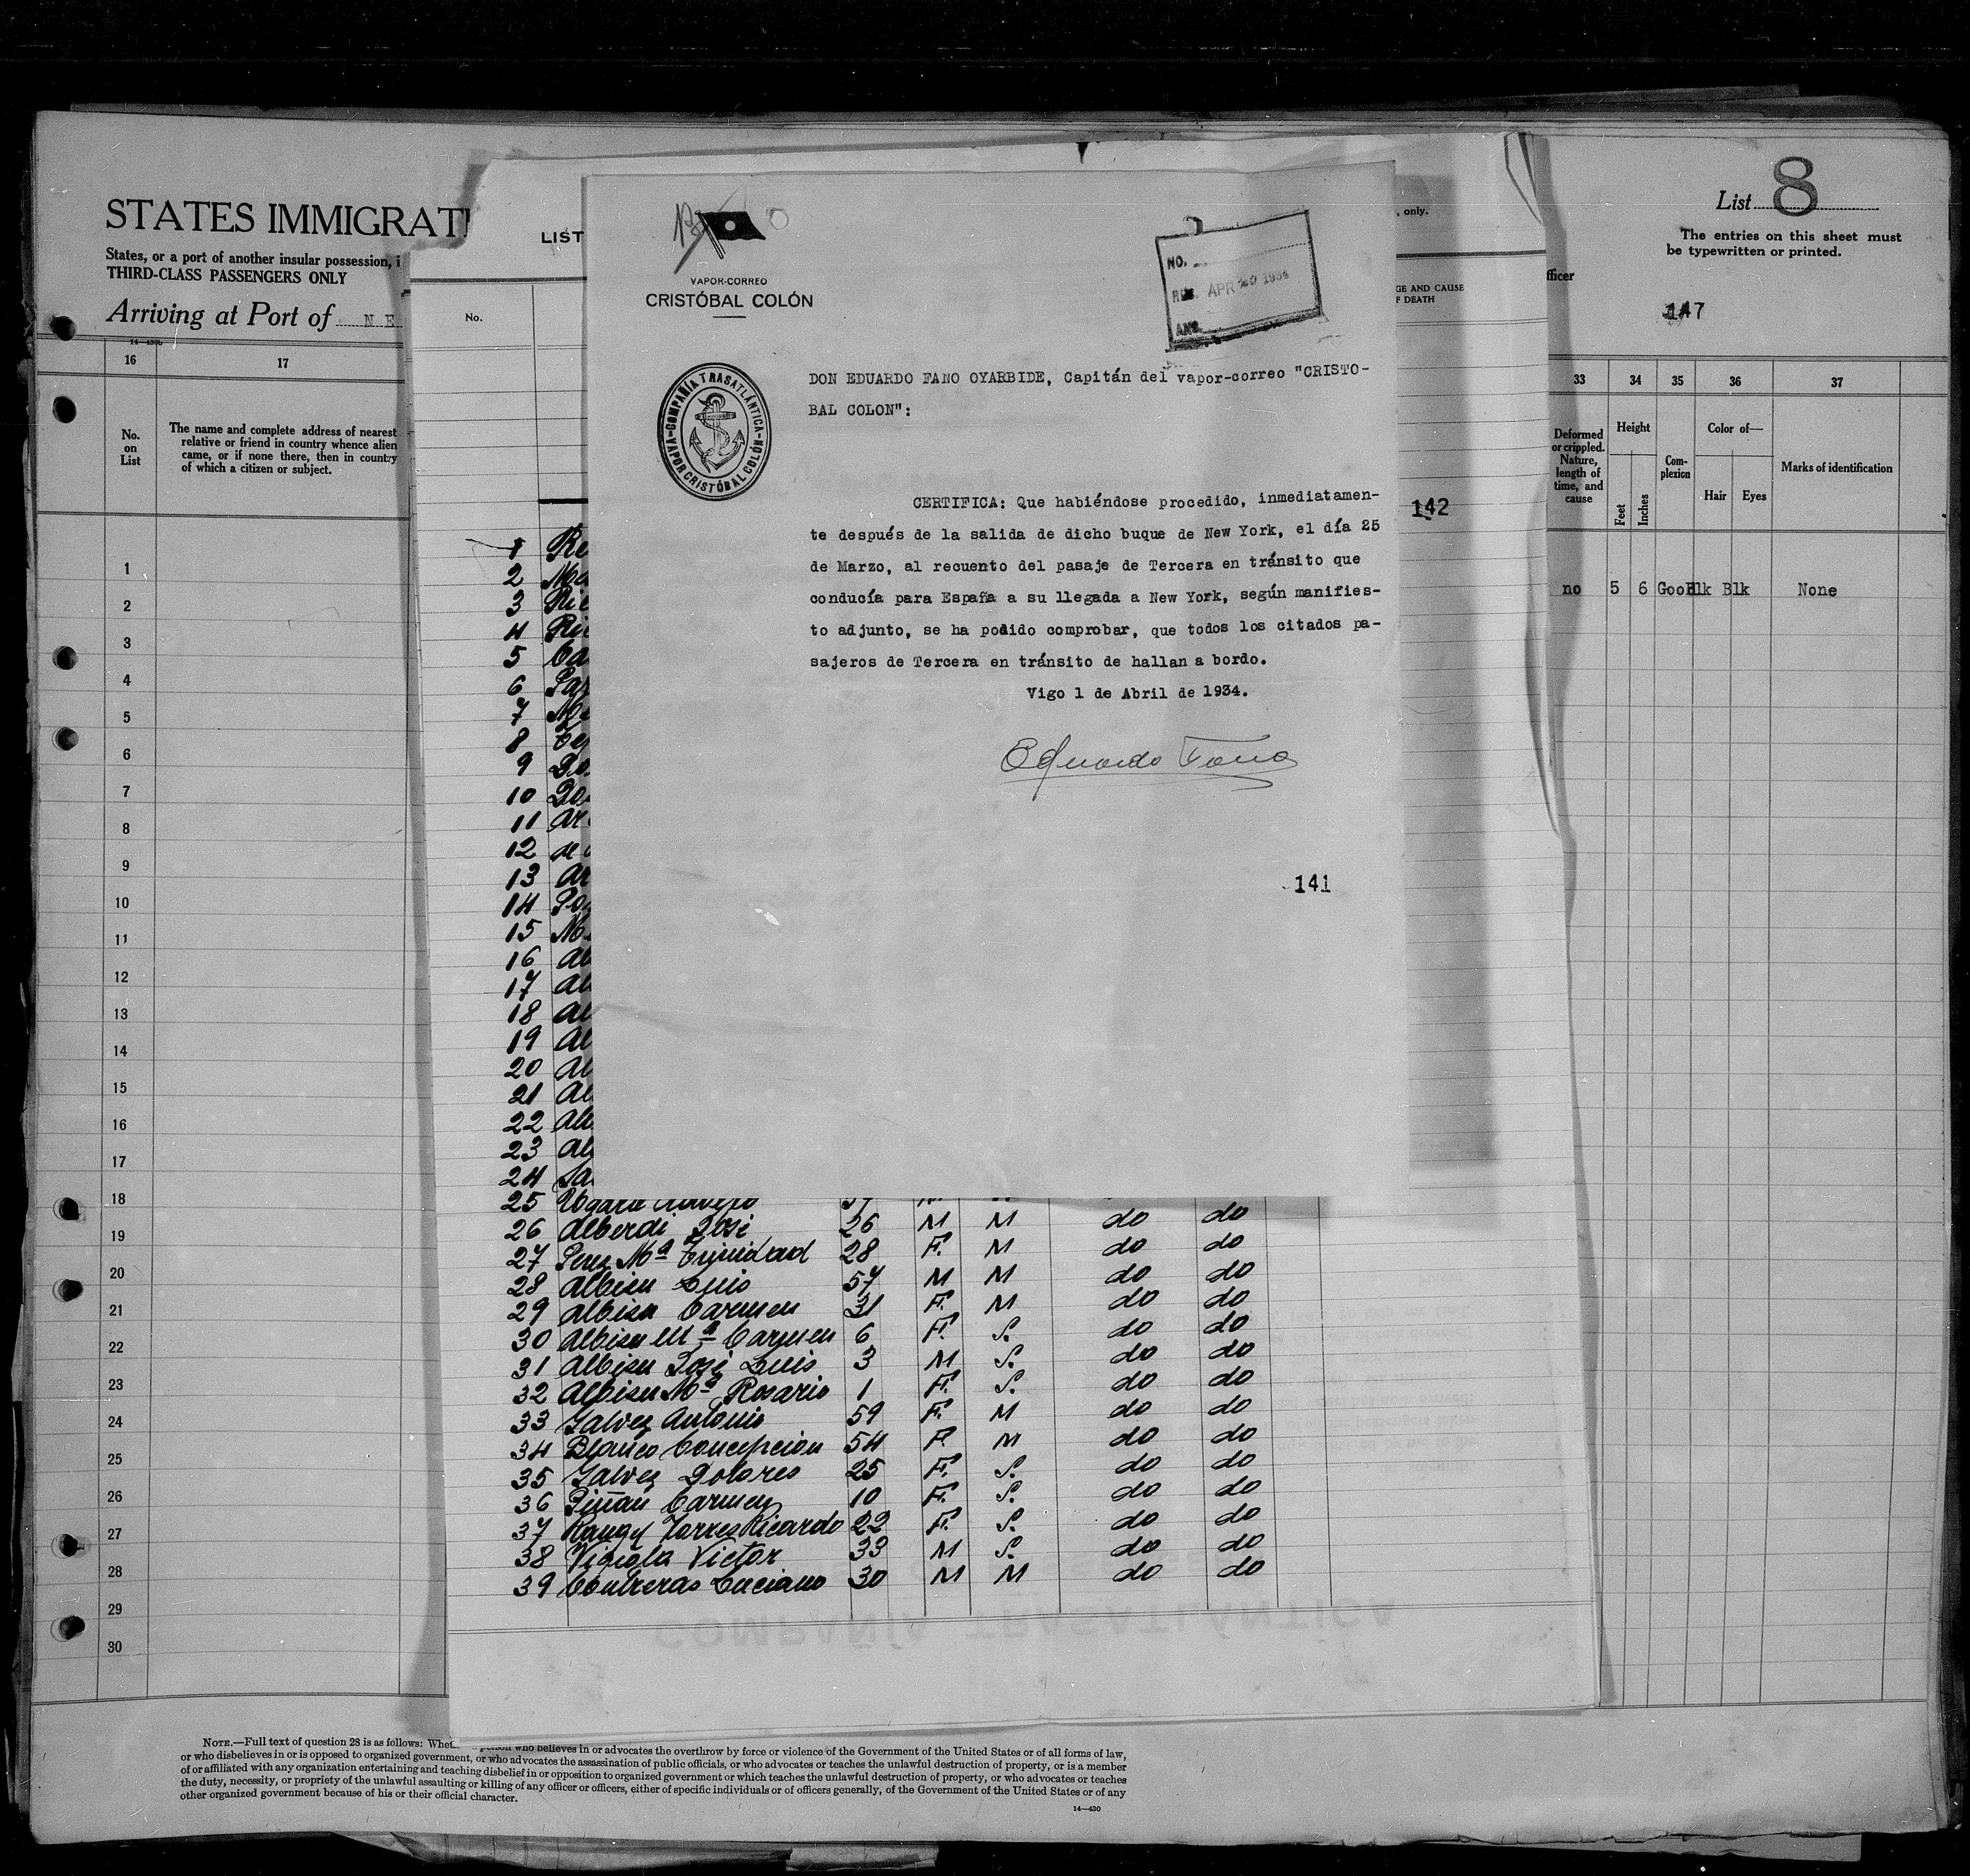 STATES IMMIGRATI
States, or a port of another insular possession, i
THIRD-CLASS PASSENGERS ONLY
Arriving at Port of N E
16 17
No. on List
The name and complete address of nearest
relative or friend in country whence alien
came, or if none there, then in country
of which a citizen or subject.
1
2
3
4
5
6
7
8
9
10
11
12
13
14
15
16
17
18
19
20
21
22
23
24
25
26
27
28
29
30
LIST
, only.
No.
GE AND CAUSE
F DEATH
142
VAPOR-CORREO
CRISTÓBAL COLÓN
NO.
APR 20 1934
ANS.
COMPAÑÍA TRASATLÁNTICA
VAPOR CRISTÓBAL COLÓN
DON EDUARDO FANO OYARBIDE, Capitán del vapor-correo "CRISTO-
BAL COLON":
CERTIFICA: Que habiéndose procedido, inmediatamen-
te después de la salida de dicho buque de New York, el día 25
de Marzo, al recuento del pasaje de Tercera en tránsito que
conducía para España a su llegada a New York, según manifies-
to adjunto, se ha podido comprobar, que todos los citados pa-
sajeros de Tercera en tránsito de hallan a bordo.
Vigo 1 de Abril de 1934.
Eduardo Fano
141
1 Re
2 Ma
3 Rie
4
5 Ca
6
7 Me
8
9
10
11 Ar
12 de
13 Ar
14
15
16 Al
17 Al
18 Al
19 Al
20 Al
21 Al
22
23
24 Sa
25
26 Alberdi José 26 M M do do
27 Perez Mª Trinidad 28 F. M do do
28 Albisu Luis 57 M M do do
29 Albisu Carmen 31 F. M do do
30 Albisu Mª Carmen 6 F. S. do do
31 Albisu José Luis 3 M S. do do
32 Albisu Mª Rosario 1 F. S. do do
33 Galvez Antonio 59 F. M do do
34 Blanco Concepcion 54 F. M do do
35 Galvez Dolores 25 F. S. do do
36 Carmen 10 F. S. do do
37 Torres Ricardo 22 F. S. do do
38 Victor 33 M S. do do
39 Contreras Luciano 30 M M do do
COMPAÑÍA TRASATLÁNTICA
List 8
The entries on this sheet must
be typewritten or printed.
fficer
147
33 34 35 36 37
Deformed
or crippled.
Nature,
length of
time, and
cause
Height
Feet Inches
Com-
plexion
Color of—
Hair Eyes
Marks of identification
no 5 6 Good Blk Blk None
NOTE.—Full text of question 28 is as follows: Whet person who believes in or advocates the overthrow by force or violence of the Government of the United States or of all forms of law,
or who disbelieves in or is opposed to organized government, or who advocates the assassination of public officials, or who advocates or teaches the unlawful destruction of property, or is a member
of or affiliated with any organization entertaining and teaching disbelief in or opposition to organized government or which teaches the unlawful destruction of property, or who advocates or teaches
the duty, necessity, or propriety of the unlawful assaulting or killing of any officer or officers, either of specific individuals or of officers generally, of the Government of the United States or of any
other organized government because of his or their official character.
14—450